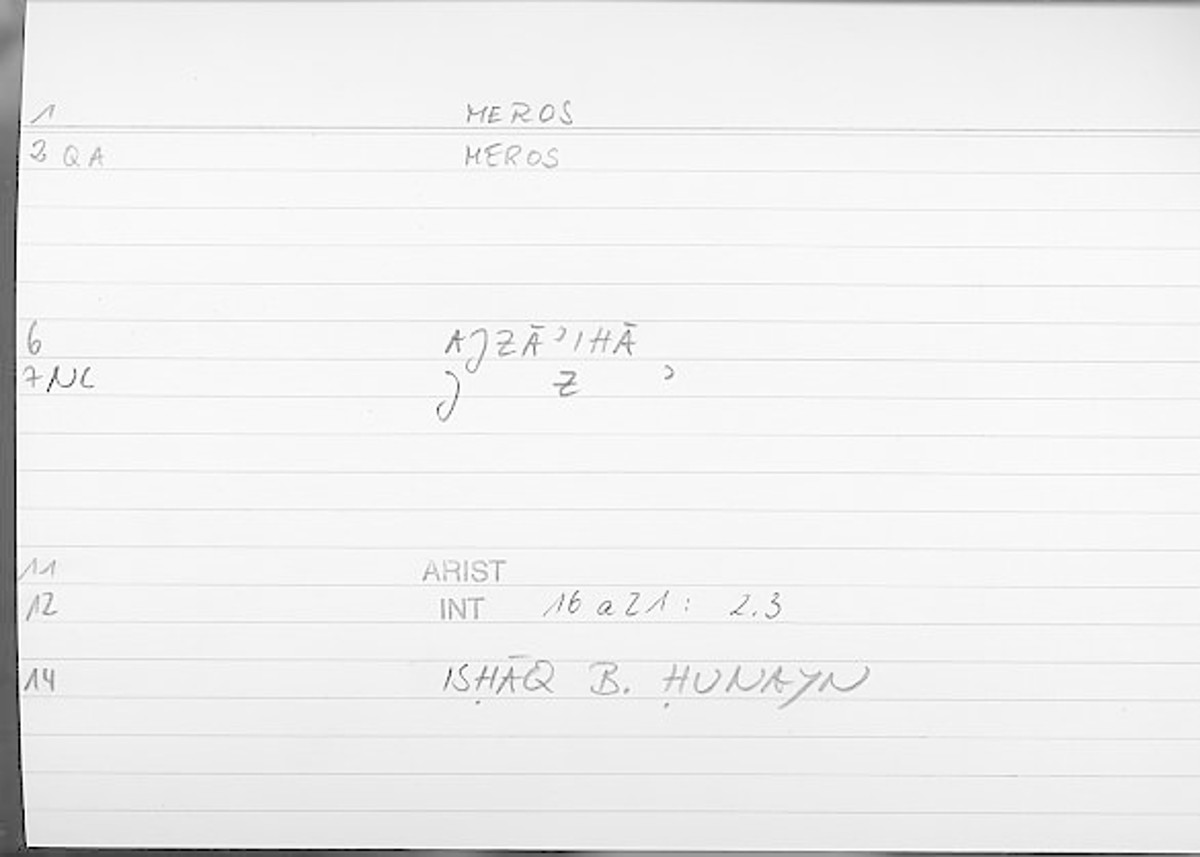 1 MEROS
2 QA MEROS
6 AJZĀʾIHĀ
7 NC J Z ʾ
11 ARIST
12 INT 16 a 21 : 2.3
14 ISḤĀQ B. ḤUNAYN